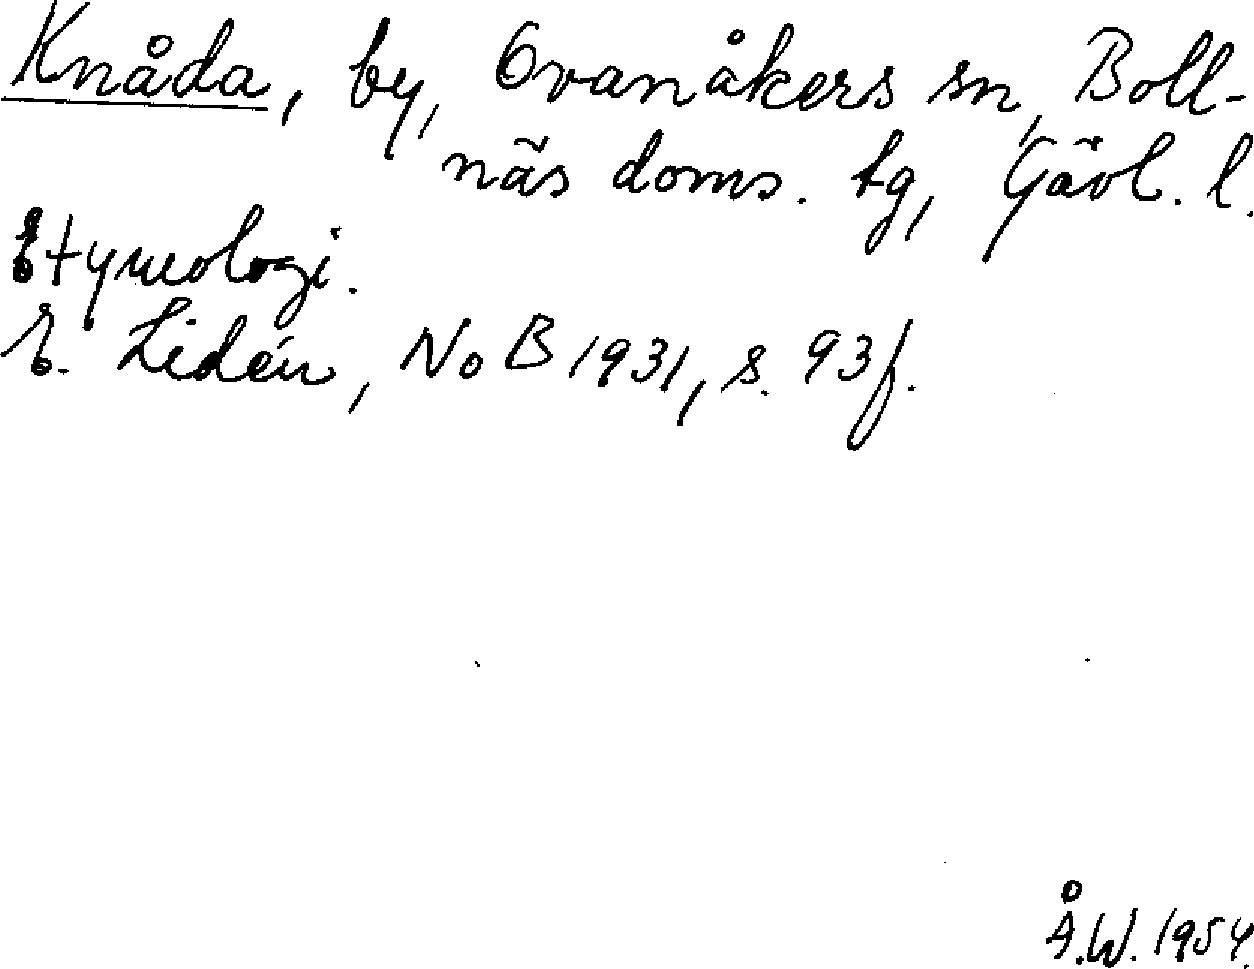 Knåda, by, Ovanåkers sn, Boll-
näs doms. tg, Gävl. l.
Etymologi.
E. Lidén, NoB 1931, s. 93 f.
Å.W. 1954.